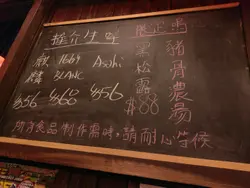 推介生啤
麒麟
1664
BLANC
Asahi
$56 $60 $56
限定
黑松露
豬骨濃湯
$88
所有食品制作需時,請耐心等候